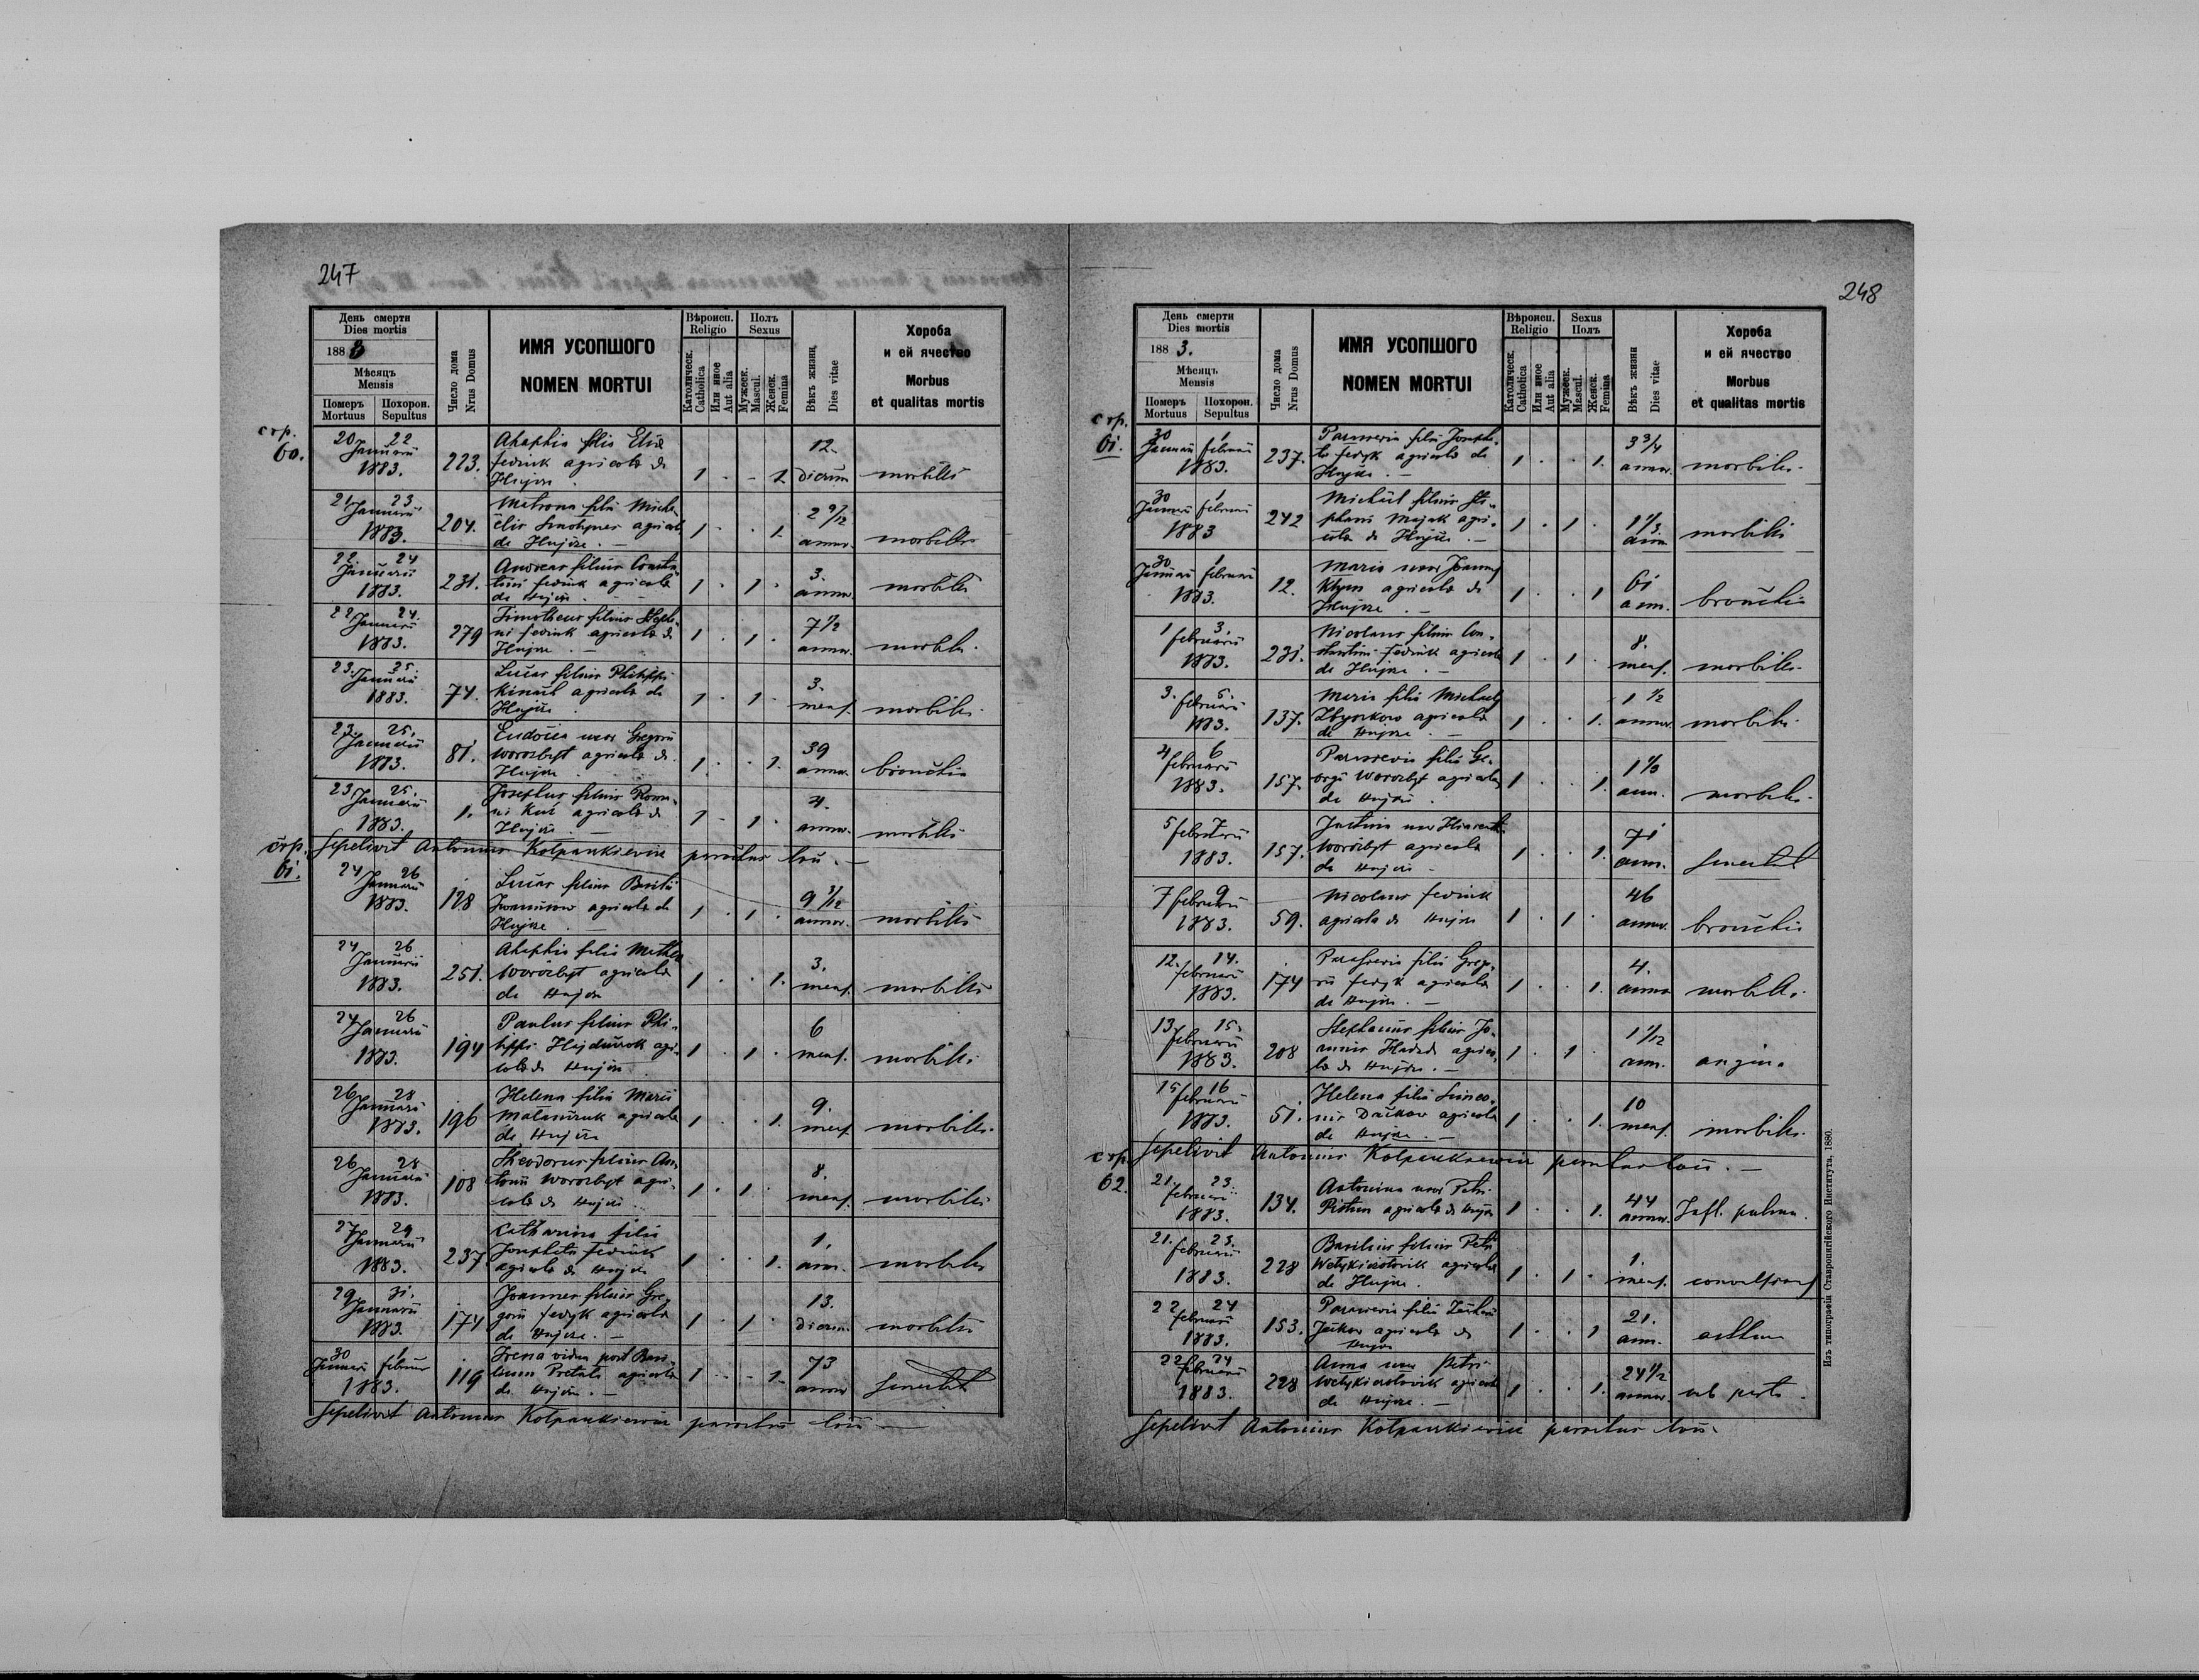 247
День смерти
Dies mortis
1883
Мѣсяць
Mensis
Померъ
Mortuus
Похорон.
Sepultus
Число дома
Nrus Domus
ИМЯ УСОПШОГО
NOMEN MORTUI
Вѣроиси.
Religio
Католическ.
Catholica
Или иное
Aut alia
Полъ
Sexus
Мужеск.
Mascul.
Женск.
Femina
Вѣкъ жизни,
Dies vitae
Хороба
и ей ячество
Morbus
et qualitas mortis
стр.
60.
20 22
Januarii
1883. 223. Ahaphia filia Eliae
Fedink agricola de
Hujcze 1 1. 12. dierum morbilli
21 23
Januarii
1883. 204. Matrona filia Micha-
agricola
de Hujcze 1 1. 2 9/12 annor. morbilli
22 24
Januarii
1883. 231. Andreas filius Constan
tini Fedink agricola
de Hujcze 1 1 3. annor. morbilli
22 24.
Januarii
1883. 279 Timotheus filius Stepha-
ni Fedink agricola de
Hujcze 1 1 7 1/2 annor. morbilli
23. 25.
Januarii
1883. 74. Lucas filius Philippi
agricola de
Hujcze 1 1 3. mens. morbilli
23. 25.
Januarii
1883. 81. Eudocia uxor Gregorii
Worozbyt agricola de
Hujcze 1 1. 39 annor. bronchia
23 25.
Januarii
1883. 1. Josephus filius Roma-
ni agricola de
Hujcze 1 1 4. annor. morbilli
Sepelivit Antonius Kolpaukiewicz parochus loci
стр.
61.
24 26
Januarii
1883. 128 Lucas filius Basilii
agricola de
Hujcze 1 1 9 3/12 annor. morbilli
24 26
Januarii
1883. 251. Ahaphia filia Mathei
Worozbyt agricola
de Hujcze 1 1. 3. mens. morbilli
24 26
Januarii
1883. 194 Paulus filius Phi-
lippi Hajduczok agri-
cola de Hujcze 1 1 6 mens. morbilli
26 28
Januarii
1883. 196 Helena filia
agricola
de Hujcze 1 1. 9. mens. morbilli
26 28
Januarii
1883. 108 Theodorus filius An-
tonii Worozbyt agri-
cola de Hujcze 1 1 8. mens. morbilli
27 29
Januarii
1883. 237 Catharina filia
Josephi Fedink
agricola de Hujcze 1 1. 1. ann. morbilli
29 31.
Januarii
1883. 174 Joannes filius Gre-
gorii Fedyk agricola
de Hujcze 1 1 13. dierum morbilli
30 1
Januarii Februar
1883. 119 Irena vidua post Basi-
lium agricola
de Hujcze 1 1. 73 annor senectus
Sepelivit Antonius Kolpaukiewicz parochus loci
248
День смерти
Dies mortis
1883.
Мѣсяць
Mensis
Померъ
Mortuus
Похорон.
Sepultus
Число дома
Nrus Domus
ИМЯ УСОПШОГО
NOMEN MORTUI
Вѣроиси.
Religio
Католическ.
Catholica
Или иное
Aut alia
Sexus
Полъ
Мужеск.
Mascul.
Женск.
Femina
Вѣкъ жизни
Dies vitae
Хороба
и ей ячество
Morbus
et qualitas mortis
стр.
61.
30 1
Januarii Februarii
1883. 237. Parascevia filia Josephi
Fedyk agricola de
Hujcze 1 1. 3 3/4 annor. morbilli
30 1
Januarii Februarii
1883 242 Michael filius Ste-
phani Majak agri-
cola de Hujcze 1 1 1 1/3 ann morbilli
30 1
Januarii Februarii
1883. 12. Maria uxor Joannis
Klym agricola de
Hujcze 1 1 61 ann. bronchia
1 3.
Februarii
1883. 231. Nicolaus filius Con-
stantini Fedink agricola
de Hujcze 1 1 8. mens. morbilli
3. 5.
Februarii
1883. 137. Maria filia Michaelis
agricola
de Hujcze 1 1. 1 1/2 annor. morbilli
4 6
Februarii
1883. 157. Parascevia filia Ge-
orgii Worozbyt agricola
de Hujcze 1 1. 1 1/3 ann. morbilli
5 7
Februarii
1883. 157. Justina uxor
Worozbyt agricola
de Hujcze 1 1. 71 ann. senectus
7 9
Februarii
1883. 59. Nicolaus Fedink
agricola de Hujcze 1 1 46 annor. bronchia
12. 14.
Februarii
1883. 174 Parascevia filia Grego-
rii Fedyk agricola
de Hujcze 1 1. 4. annor morbilli
13 15.
Februarii
1883. 208 Stephanus filius Jo-
annis agrico-
la de Hujcze 1 1 1 1/12 ann. angina
15 16
Februarii
1883. 51. Helena filia Simeo-
nis agricola
de Hujcze 1 1. 10 mens. morbilli
Sepelivit Antonius Kolpaukiewicz parochus loci
стр.
62.
21. 23.
Februarii
1883. 134. Antonina uxor Petri
Pistun agricola de Hujcze 1 1. 44 annor. Infl. pulmon.
21. 23.
Februarii
1883. 228 Basilius filius Petri
agricola
de Hujcze 1 1 1. mens. convulsiones
22 24
Februarii
1883. 153. Parascevia filia
agricola de
Hujcze 1 1 21. ann. asthma
22 24
Februarii
1883. 228 Anna uxor Petri
agricola
de Hujcze 1 1. 24 1/2 annor.
Sepelivit Antonius Kolpaukiewicz parochus loci
Изъ типографіи Ставропигійского Института, 1880.